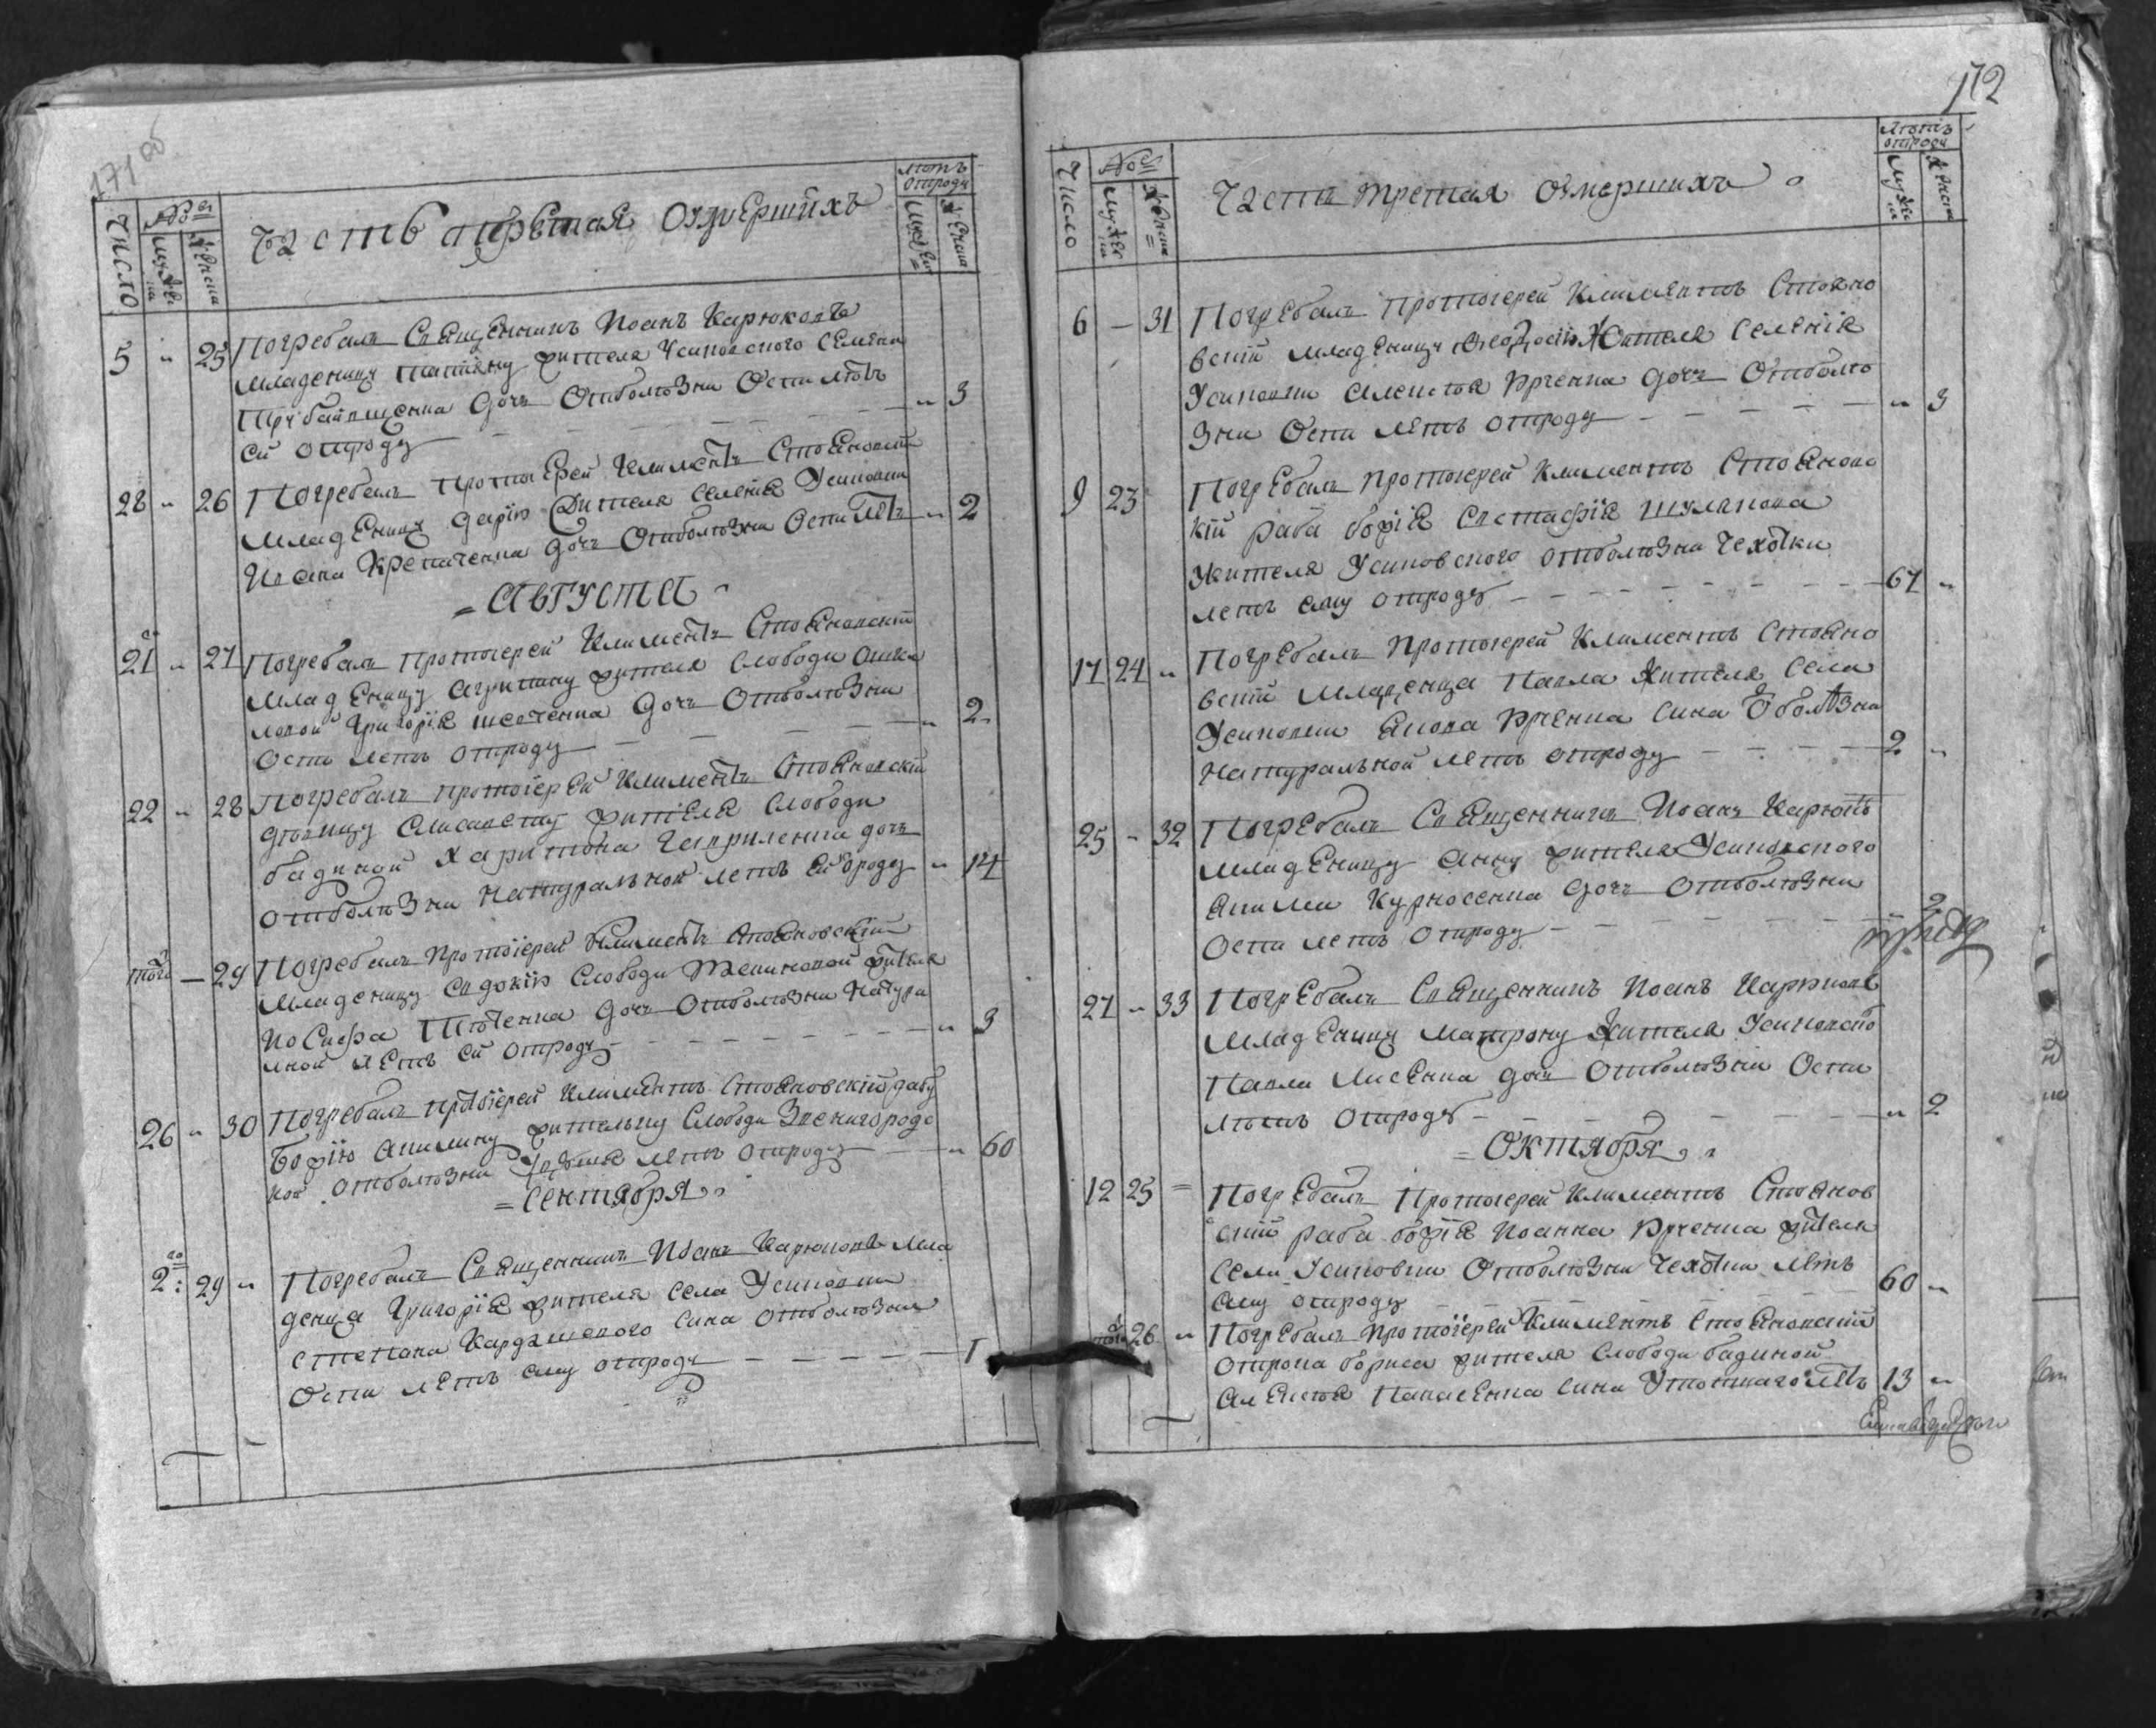 171 об
Число
№
мужеска
женска
Часть третая Оумершихъ
Лѣтъ
отроду
мужеска
женска
5 " 25 Погребалъ Священникъ Иоанъ Карюковъ
младеницу татіяну жителя Усиковского Семена
дочь Отболѣзни Оспи лѣтъ
ей отроду " 3
28 " 26 Погребалъ протоіерей Климентъ Стояновскій
Младеницу дарію жителя Селенія Усиковки
Ивана дочь Отболѣзни Оспи лѣтъ " 2
= Августа
21 " 27 Погребалъ Протоіерей Климентъ Стояновскій
Младеницу Агрипину жителя Слободи
Григорія Шевченка дочь Отболѣзни
Оспи летъ отроду " 2
22 " 28 Погребалъ протоіерей Климентъ Стояновскій
дѣвицу Елисавету жителя Слободи
бадиной Харитона Гавриленка дочь
отболѣзни натуральной летъ ей отроду " 14
того — 29 Погребалъ Протоіерей Климентъ Стояновскій
младеницу Евдокію Слободи жителя
Иосифа дочь Отболѣзни Натура
лной летъ ей отроду " 3
26 " 30 Погребалъ протоіерей Климентъ Стояновскій рабу
Божію Акилину жителку Слободи Звенигородс
кой отболѣзни летъ отроду " 60
= Сентября
2: 29 " Погребалъ Священникъ Иоанъ Карюковъ Мла
денца Григорія жителя Села Усиковки
Степана Кардашевого Сина отболѣзни
Оспи летъ ему отроду 1
172
Число
№
мужеска
женска
Часть третая Оумершихъ
Лѣтъ
отроду
мужеска
женска
6 — 31 Погребалъ Протоіерей Климентъ Стояно
вскій младеницу Феодосію жителя Селенія
Усиковки Алексія Юрченка дочь Отболѣ
зни Оспи летъ отроду " 3
9 23 Погребалъ Протоіерей Климентъ Стояновс
кій раба божія Евстафія Шулакова
жителя Усиковского отболѣзни чехотки
летъ ему отроду 67 "
17 24 " Погребалъ Протоіерей Климентъ Стояно
вскій Младенца Павла жителя Села
Усиковки Якова Юрченка Сина Оболѣзни
Натуральной летъ отроду 2 "
25 — 32 Погребалъ Священникъ Иоанъ Карюковъ
Младеницу Анну жителя Усиковского
Якима Курносенка дочь Отболѣзни
Оспи летъ отроду 2
27 — 33 Погребалъ Священникъ Иоанъ Карюковъ
Младеницу Матрону жителя Усиковского
Павла Лисенка дочь Отболѣзни Оспи
лѣтъ отроду " 2
= Октября
12 25 = Погребалъ Протоіерей Климентъ Стоянов
скій раба божія Иоанна Юрченка жителя
Села Усиковки Отболѣзни чехотки летъ
ему отроду 60 "
того 26 " Погребалъ Протоіерей Климентъ Стояновскій
отрока бориса жителя Слободи бадиной
Алексія Панасенка Сина Утопшаго лѣтъ 13 "